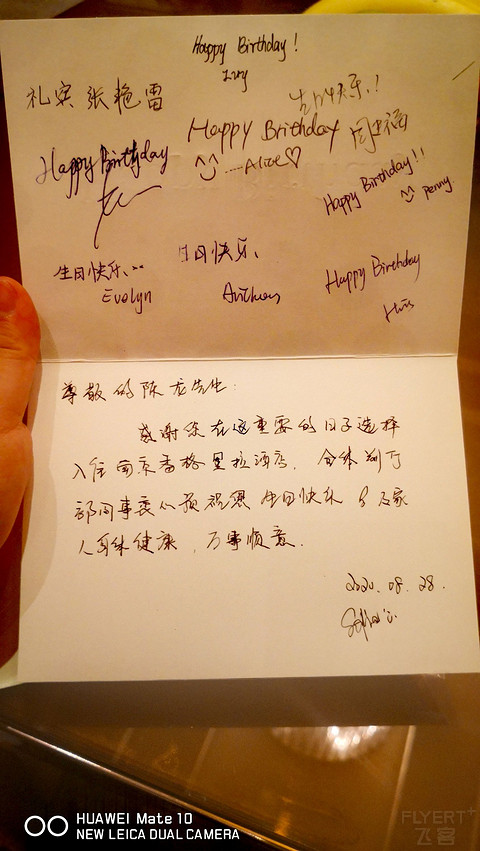 Happy Birthday!
礼宾 张艳雷
生日快乐!
Happy Birthday
Happy Birthday
Alice♡
Happy Birthday!!
Penny
生日快乐
Evelyn
生日快乐
Anthony
Happy Birthday
尊敬的陈龙先生:
感谢您在这重要的日子选择
入住南京香格里拉酒店, 全体前厅
部同事衷心预祝您 生日快乐 及家
人身体健康, 万事顺意.
2020.08.28.
HUAWEI Mate 10
NEW LEICA DUAL CAMERA
FLYERT+
飞客